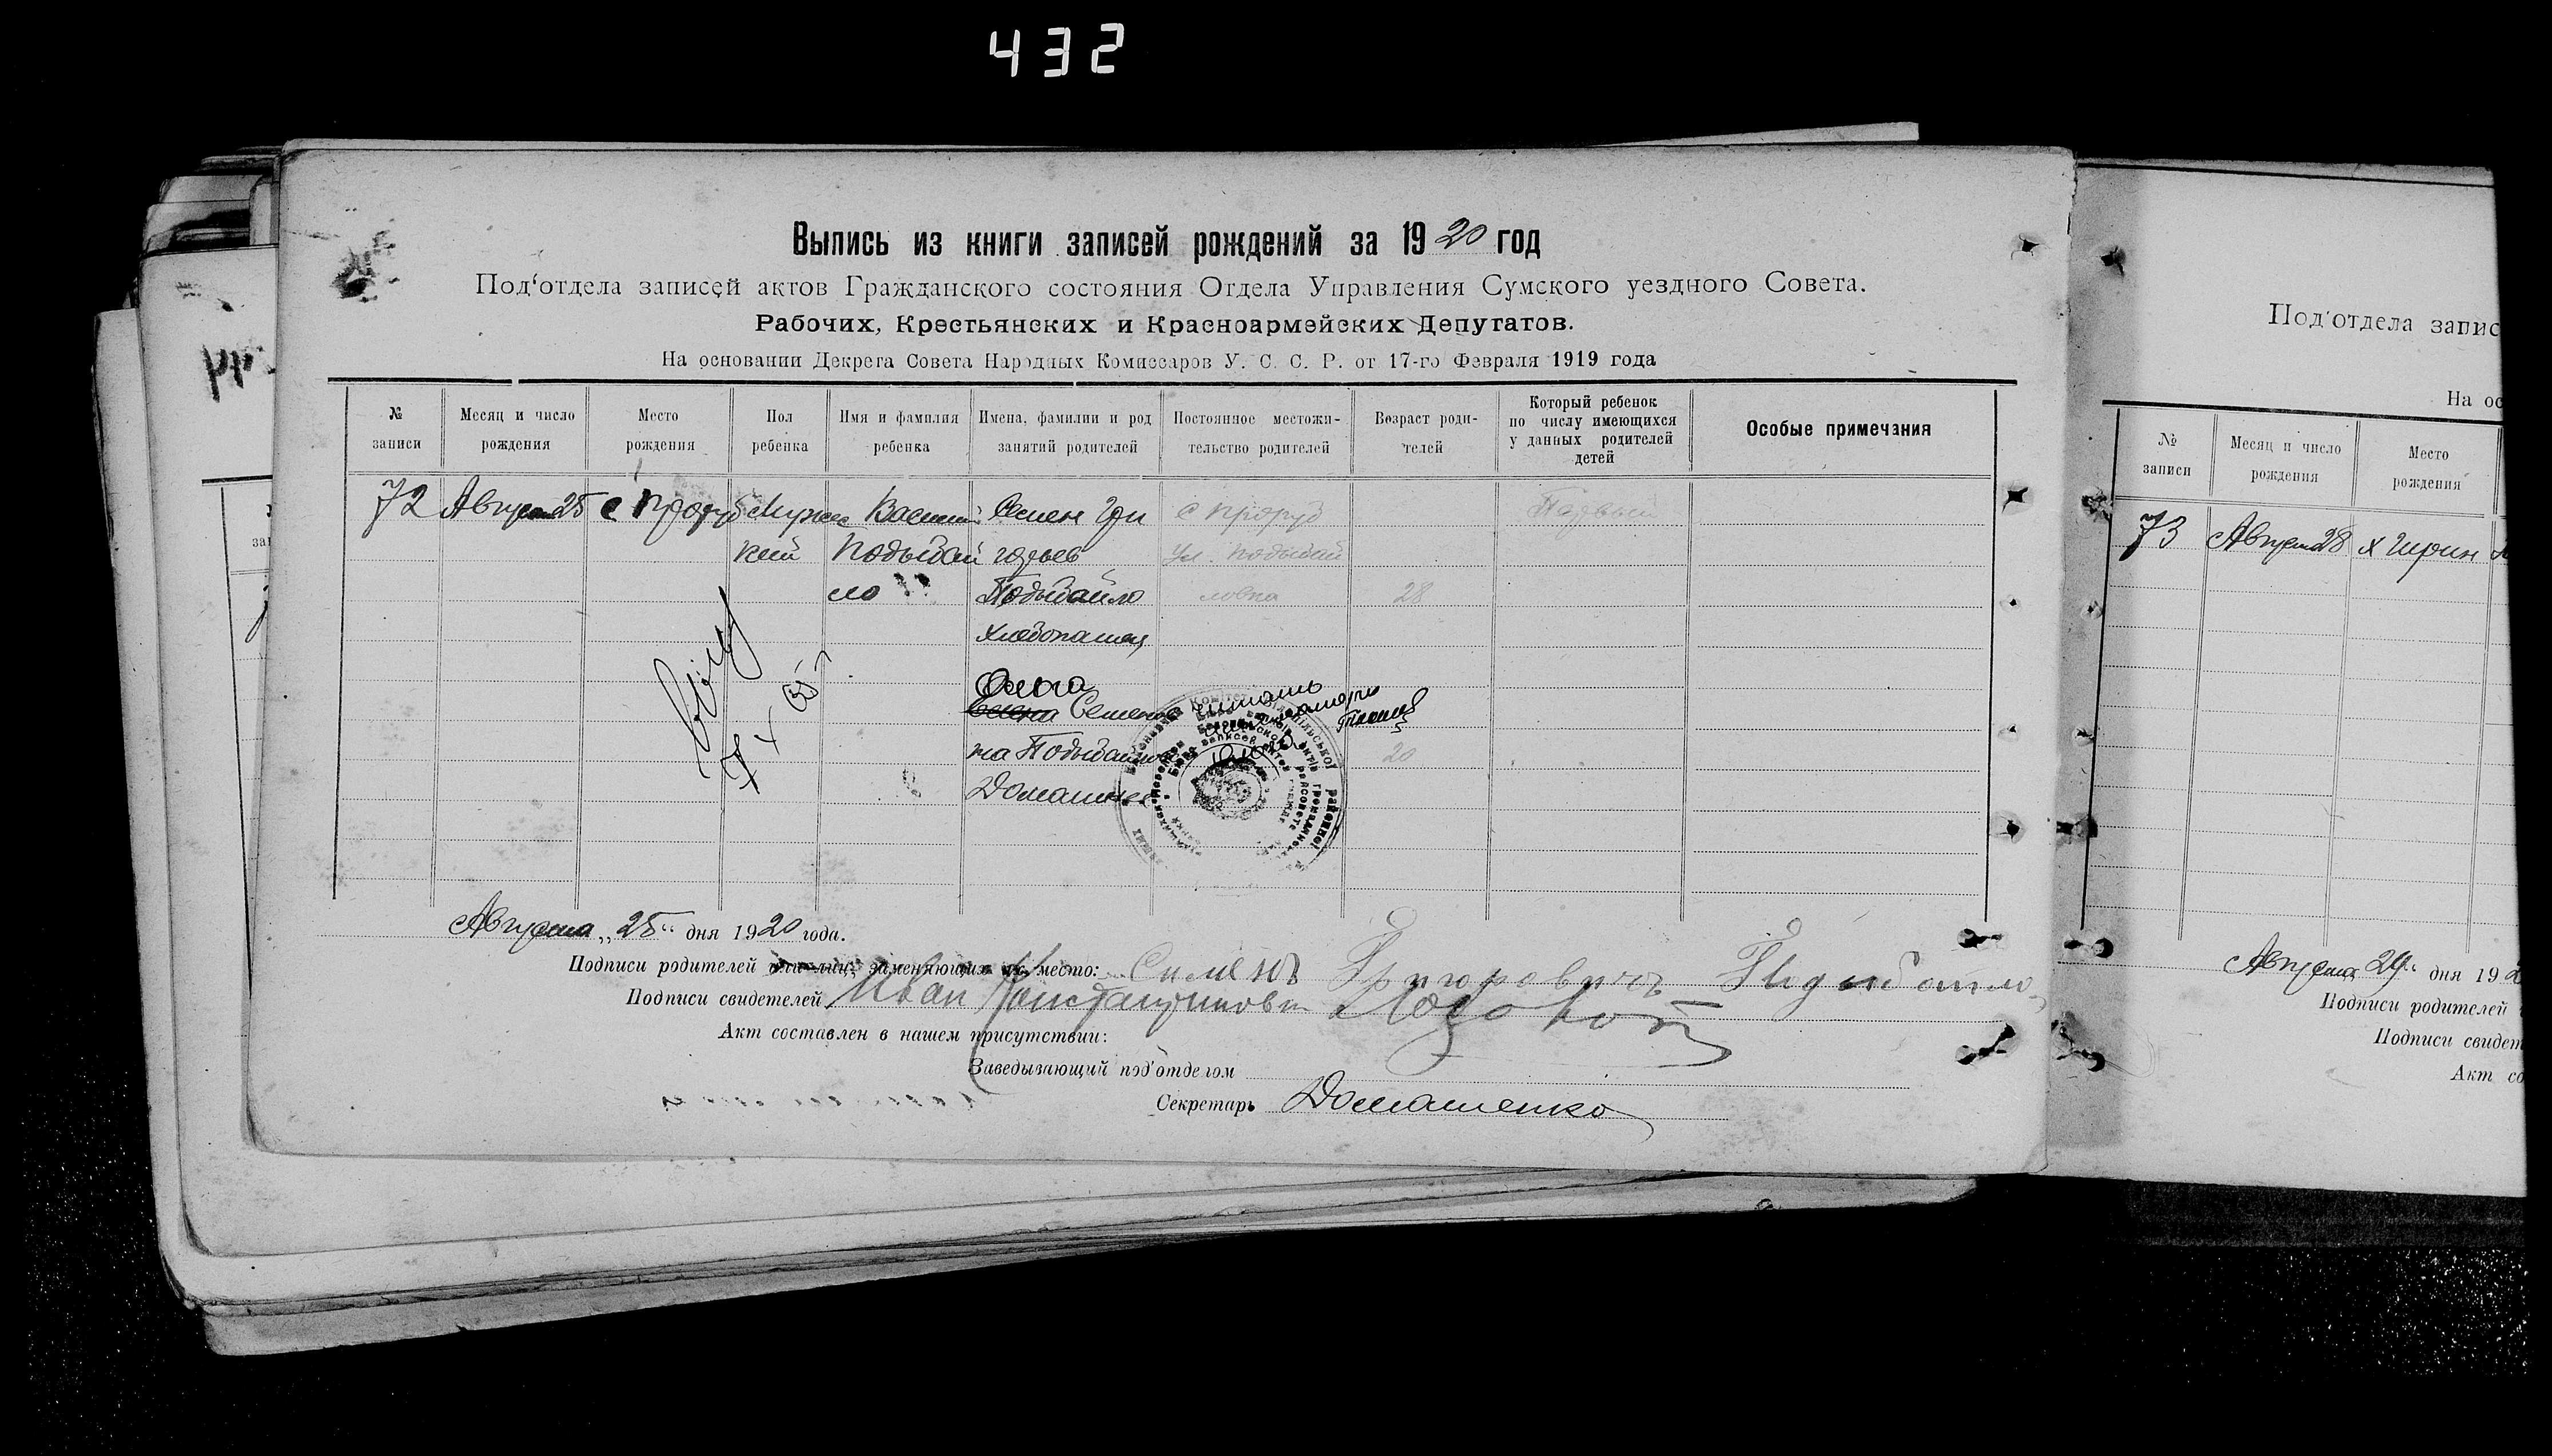 432
Выпись из книги записей рождений за 1920 год
Под‘отдела записей актов Гражданского состояния Отдела Управления Сумского уездного Совета.
Рабочих, Крестьянских и Красноармейских Депутатов.
На основании Декрета Совета Народных Комиссаров У. С. С. Р. от 17-го Февраля 1919 года
№ записи
Месяц и число рождения
Место рождения
Пол ребенка
Имя и фамилия ребенка
Имена, фамилии и род занятий родителей
Постоянное местожительство родителей
Возраст родителей
Который ребенок по числу имеющихся у данных родителей детей
Особые примечания
72 Август 25 с Проруб Мужс Василий Семен Гри с Проруб Первый
кий Подывай горьев ул. Подывай
ло Подывайло ловка 28
хлебопашец
Ольга
Елена Семенов читать
на Подывайло 20
Домашнее
Августа „25“ дня 1920 года.
Подписи родителей или лиц, заменяющих их место: Семенъ Григоровичъ Подывайло
Подписи свидетелей Иван Константинович Лозовой
Акт составлен в нашем присутствии:
Заведывающий под‘отделом
Секретарь Домашенко
Под‘отдела запис
На ос
№ записи
Месяц и число рождения
Место рождения
73 Август 28
Августа 29“ дня 192
Подписи родителей
Подписи свидет
Акт со